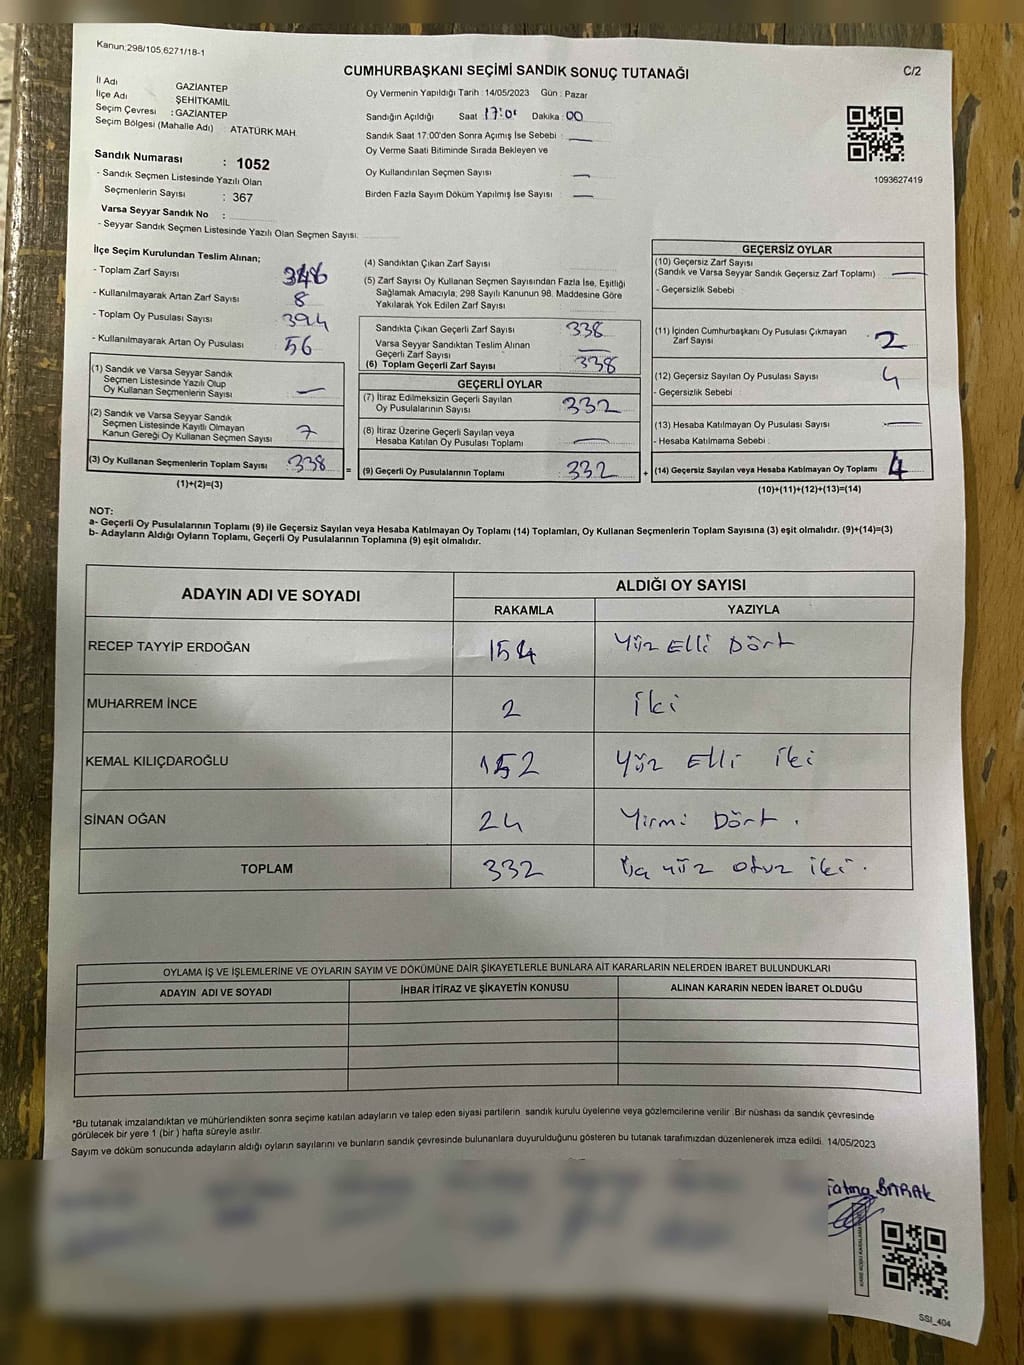 Kanun;298/105,6271/18-1
CUMHURBAŞKANI SEÇİMİ SANDIK SONUÇ TUTANAĞI
C/2
İl Adı GAZİANTEP
İlçe Adı : ŞEHİTKAMİL
Seçim Çevresi : GAZİANTEP
Seçim Bölgesi (Mahalle Adı) : ATATÜRK MAH.
Sandık Numarası : 1052
- Sandık Seçmen Listesinde Yazılı Olan
Seçmenlerin Sayısı : 367
Varsa Seyyar Sandık No :
- Seyyar Sandık Seçmen Listesinde Yazılı Olan Seçmen Sayısı:
Oy Vermenin Yapıldığı Tarih : 14/05/2023 Gün : Pazar
Sandığın Açıldığı Saat 17:01 Dakika : 00
Sandık Saat 17:00'den Sonra Açımış İse Sebebi : —
Oy Verme Saati Bitiminde Sırada Bekleyen ve
Oy Kullandırılan Seçmen Sayısı —
Birden Fazla Sayım Döküm Yapılmış İse Sayısı : —
1093627419
İlçe Seçim Kurulundan Teslim Alınan;
- Toplam Zarf Sayısı 346
- Kullanılmayarak Artan Zarf Sayısı : 8
- Toplam Oy Pusulası Sayısı : 394
- Kullanılmayarak Artan Oy Pusulası : 56
(1) Sandık ve Varsa Seyyar Sandık
Seçmen Listesinde Yazılı Olup
Oy Kullanan Seçmenlerin Sayısı : —
(2) Sandık ve Varsa Seyyar Sandık
Seçmen Listesinde Kayıtlı Olmayan
Kanun Gereği Oy Kullanan Seçmen Sayısı : 7
(3) Oy Kullanan Seçmenlerin Toplam Sayısı : 338
(1)+(2)=(3)
(4) Sandıktan Çıkan Zarf Sayısı
(5) Zarf Sayısı Oy Kullanan Seçmen Sayısından Fazla İse, Eşitliği
Sağlamak Amacıyla; 298 Sayılı Kanunun 98. Maddesine Göre
Yakılarak Yok Edilen Zarf Sayısı
Sandıkta Çıkan Geçerli Zarf Sayısı : 338
Varsa Seyyar Sandıktan Teslim Alınan
Geçerli Zarf Sayısı : —
(6) Toplam Geçerli Zarf Sayısı 338
GEÇERLİ OYLAR
(7) İtiraz Edilmeksizin Geçerli Sayılan
Oy Pusulalarının Sayısı : 332
(8) İtiraz Üzerine Geçerli Sayılan veya
Hesaba Katılan Oy Pusulası Toplamı : —
= (9) Geçerli Oy Pusulalarının Toplamı : 332
GEÇERSİZ OYLAR
(10) Geçersiz Zarf Sayısı
(Sandık ve Varsa Seyyar Sandık Geçersiz Zarf Toplamı) : —
- Geçersizlik Sebebi :
(11) İçinden Cumhurbaşkanı Oy Pusulası Çıkmayan
Zarf Sayısı : 2
(12) Geçersiz Sayılan Oy Pusulası Sayısı : 4
- Geçersizlik Sebebi :
(13) Hesaba Katılmayan Oy Pusulası Sayısı : —
- Hesaba Katılmama Sebebi :
+ (14) Geçersiz Sayılan veya Hesaba Katılmayan Oy Toplamı : 4
(10)+(11)+(12)+(13)=(14)
NOT:
a- Geçerli Oy Pusulalarının Toplamı (9) ile Geçersiz Sayılan veya Hesaba Katılmayan Oy Toplamı (14) Toplamları, Oy Kullanan Seçmenlerin Toplam Sayısına (3) eşit olmalıdır. (9)+(14)=(3)
b- Adayların Aldığı Oyların Toplamı, Geçerli Oy Pusulalarının Toplamına (9) eşit olmalıdır.
ADAYIN ADI VE SOYADI ALDIĞI OY SAYISI
RAKAMLA YAZIYLA
RECEP TAYYİP ERDOĞAN 154 Yüz Elli Dört
MUHARREM İNCE 2 iki
KEMAL KILIÇDAROĞLU 152 Yüz Elli iki
SİNAN OĞAN 24 Yirmi Dört .
TOPLAM 332 Üç yüz otuz iki.
OYLAMA İŞ VE İŞLEMLERİNE VE OYLARIN SAYIM VE DÖKÜMÜNE DAİR ŞİKAYETLERLE BUNLARA AİT KARARLARIN NELERDEN İBARET BULUNDUKLARI
ADAYIN ADI VE SOYADI İHBAR İTİRAZ VE ŞİKAYETİN KONUSU ALINAN KARARIN NEDEN İBARET OLDUĞU
*Bu tutanak imzalandıktan ve mühürlendikten sonra seçime katılan adayların ve talep eden siyasi partilerin sandık kurulu üyelerine veya gözlemcilerine verilir .Bir nüshası da sandık çevresinde
görülecek bir yere 1 (bir ) hafta süreyle asılır.
Sayım ve döküm sonucunda adayların aldığı oyların sayılarını ve bunların sandık çevresinde bulunanlara duyurulduğunu gösteren bu tutanak tarafımızdan düzenlenerek imza edildi. 14/05/2023
Fatma BARAK
SSI_404